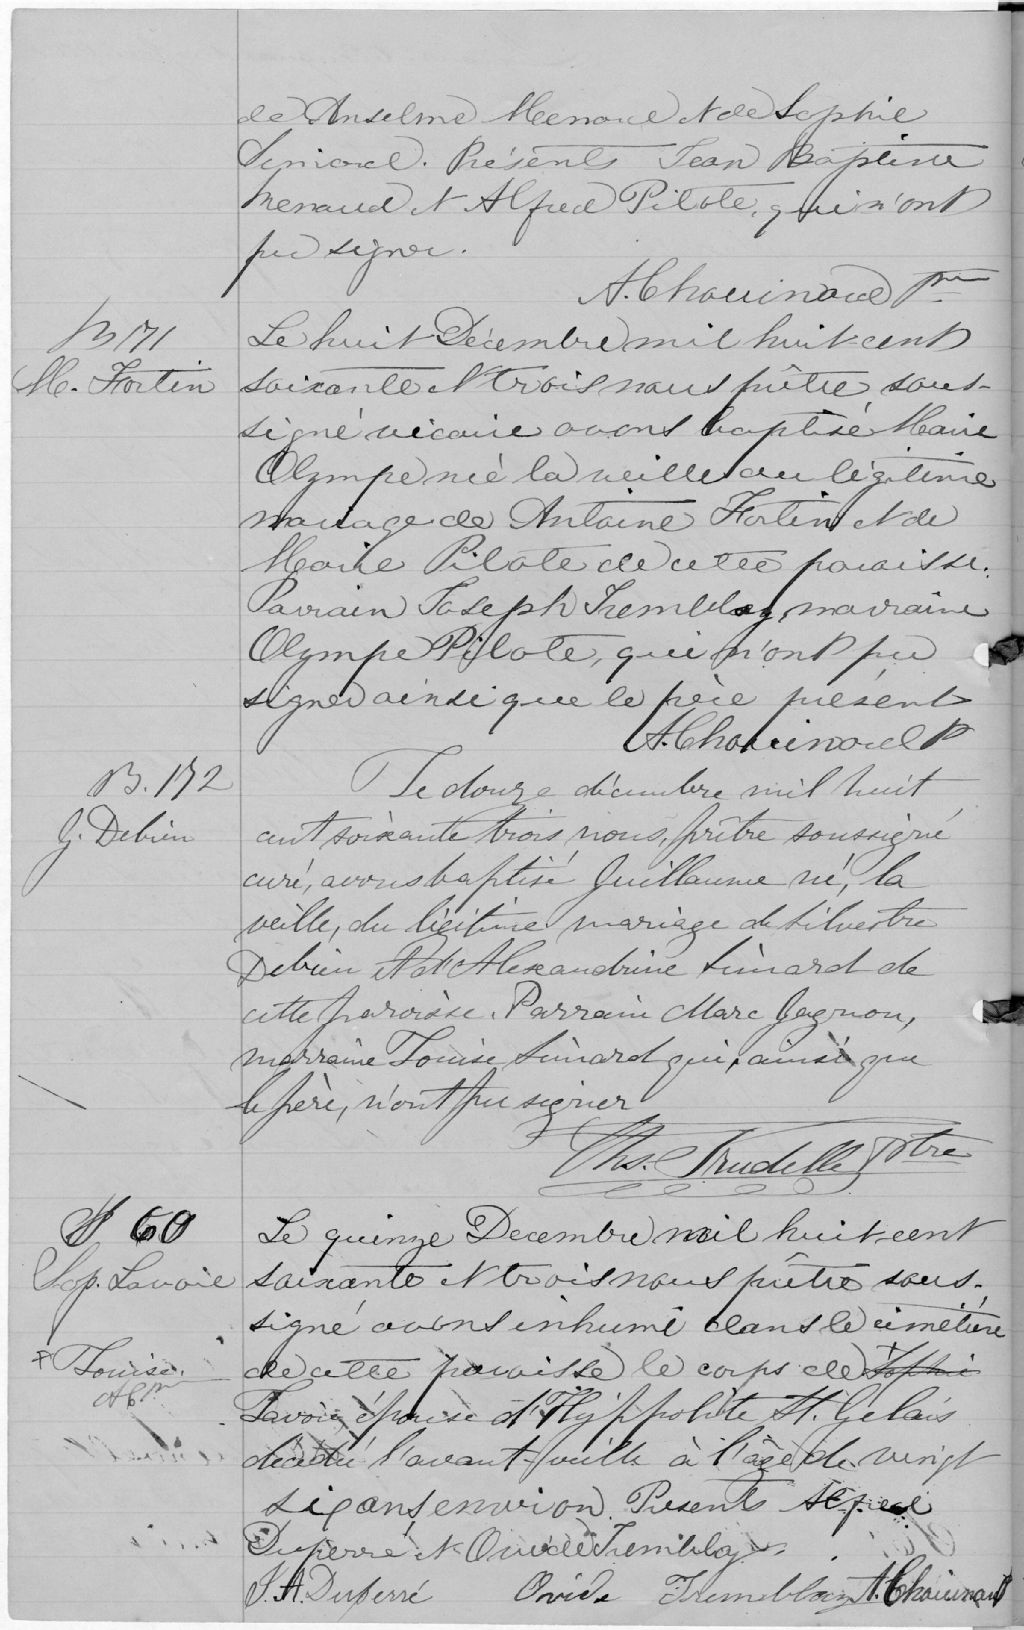 de Anselme Menaud & de Sophie
Simard. Présents Jean Baptiste
Menaud & Alfred Pilote, qui n'ont
pu signer.
A. Chouinard Ptre
B 171
M. Fortin
Le huit Décembre mil huit cent
soixante & trois nous prêtre sous-
signé vicaire avons baptisé Marie
Olympe née la veille du légitime
mariage de Antoine Fortin & de
Marie Pilote de cette paroisse.
Parrain Joseph Tremblay, marraine
Olympe Pilote, qui n'ont pu
signer ainsi que le père présent
A. Chouinard P
B. 172
G. Debien
Le douze décembre mil huit
cent soixante trois, nous, prêtre soussigné
curé, avons baptisé Guillaume né, la
veille, du légitime mariage de Silvestre
Debien & d'Alexandrine Simard de
cette paroisse. Parrain Marc Gagnon,
marraine Louise Simard qui, ainsi que
le père, n'ont pu signer
Ths. Trudelle ptre
S 60
Sop. Lavoie
Le quinze Decembre mil huit cent
soixante & trois nous prêtre sous-
signé avons inhumé dans le cimetière
+ Louise.
A C ptre
de cette paroisse le corps de Sophie
Lavoie épouse d'Hyppolite St. Gelais
décédée l'avant-veille à l'âge de vingt
six ans environ. Présents
Duperré & Ovide Tremblay.
J. A. Duperré Ovide Tremblay A. Chouinard